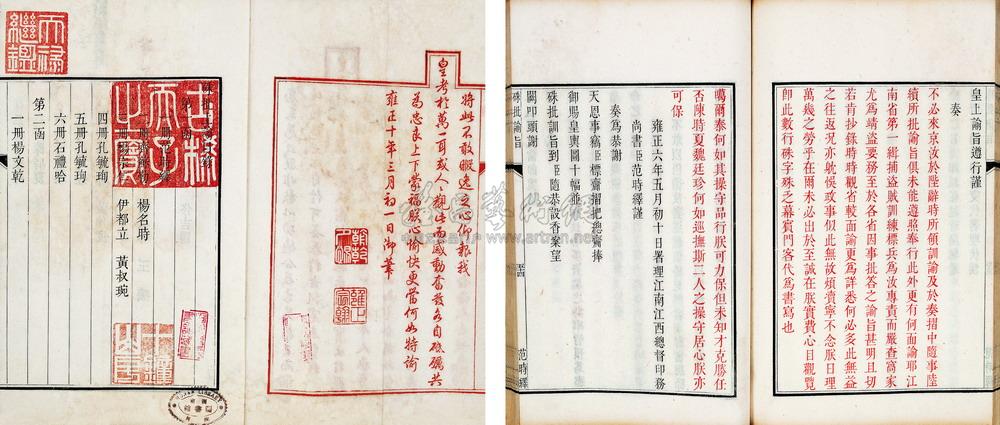 天祿繼鑑
將此不敢暇逸之心仰報我
皇考於萬一耳或人人觀此而感動奮發各自砥礪共
為忠良上下蒙福朕心愉快更當何如特諭
雍正十年三月初一日御筆
朝乾夕惕
雍正宸翰
古稀天子之寶
楊名時
伊都立 黃叔琬
四冊孔毓珣
五冊孔毓珣
六冊石禮哈
第二函
一冊楊文乾
皇上諭旨遵行謹
奏
不必來京汝於陛辭時所領訓諭及於奏摺中隨事陸
續所批諭旨俱未能遵照奉行此外更有何面諭耶江
南省第一緝捕盜賊訓練標兵爲汝專責而嚴查窩家
尤爲靖盜要務至於各省因事批答之諭旨甚明且切
若肯抄錄時時觀省較面諭更爲詳悉何必多此無益
之往返況亦耽悞攻事似此無故煩瀆寧不念朕日理
萬幾之勞乎在爾未必出於至誠在朕實費心目觀覽
即此數行硃字殊之幕賓門客代爲書寫也
噶爾泰何如其操守品行朕可力保但未知才克勝任
否陳時夏魏廷珍何如巡撫斯二人之操守居心朕亦
可保
雍正六年五月初十日署理江南江西總督印務
尚書臣范時繹謹
奏爲恭謝
天恩事竊臣標齎摺把總齎捧
御賜皇輿圖十幅並
硃批訓旨到臣隨恭設香案望
闕叩頭謹
硃批諭旨
范時繹